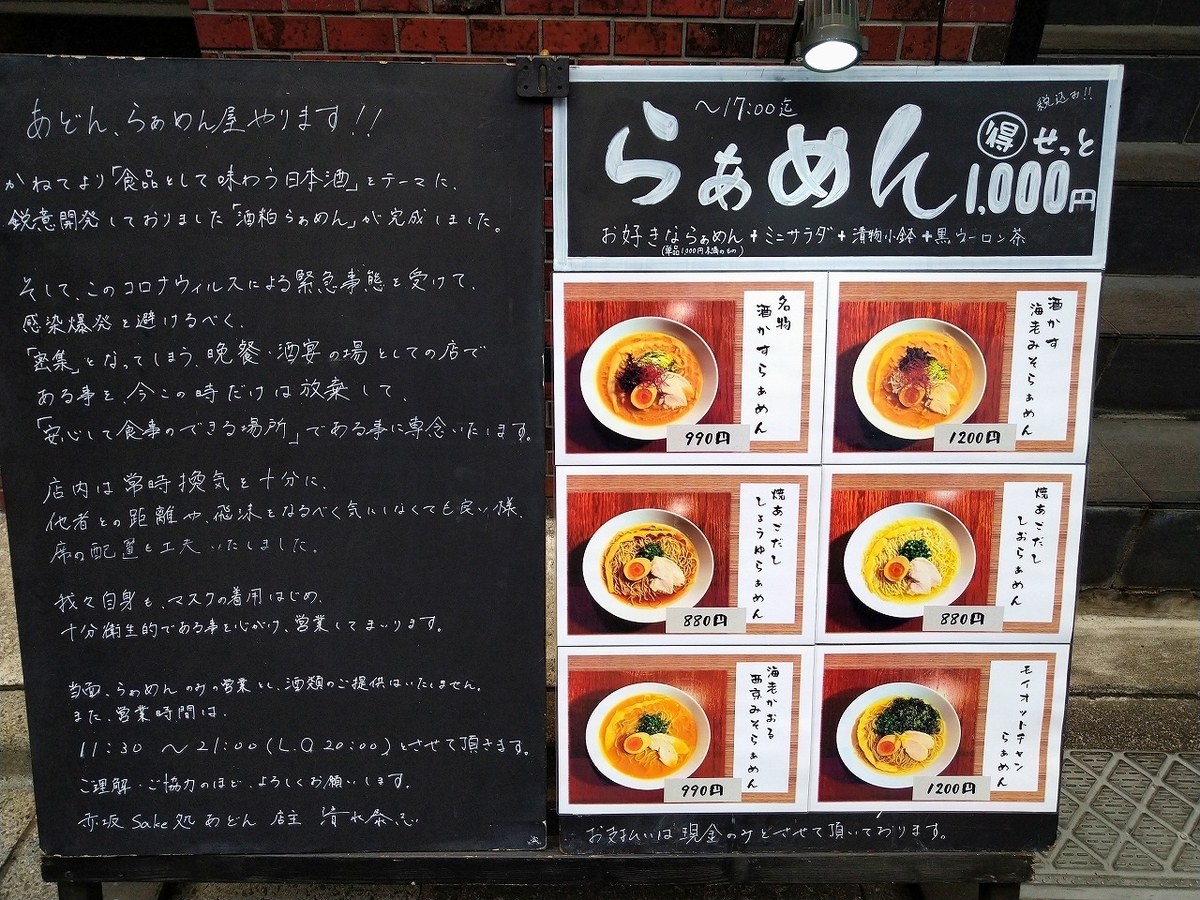 あどん、らぁめん屋やります!!
かねてより「食品として味わう日本酒」をテーマに、
鋭意開発しておりました「酒粕らぁめん」が完成しました。
そして、このコロナウィルスによる緊急事態を受けて、
感染爆発を避けるべく、
「密集」となってしまう、晩餐・酒宴の場としての店で
ある事を、今この時だけは放棄して、
「安心して食事のできる場所」である事に専念いたします。
店内は常時換気を十分に、
他者との距離や、飛沫をなるべく気にしなくても良い様、
席の配置を工夫いたしました。
我々自身も、マスクの着用はじめ、
十分衛生的である事を心がけ、営業してまいります。
当面、らぁめんのみの営業とし、酒類のご提供はいたしません。
また、営業時間は、
11:30 〜21:00(L.O 20:00)とさせて頂きます。
ご理解・ご協力のほど、よろしくお願いします。
赤坂 Sake 処 あどん 店主
〜17:00迄
税込み!!
らぁめん
得 せっと
1,000円
お好きならぁめん+ミニサラダ+漬物小鉢+黒ウーロン茶
(単品1,000円未満のもの)
名物
酒かすらぁめん
990円
酒かす
海老みそらぁめん
1200円
焼あごだし
しょうゆらぁめん
880円
焼あごだし
しおらぁめん
880円
海老かおる
西京みそらぁめん
990円
モイオットチャン
らぁめん
1200円
お支払いは現金のみとさせて頂いております。